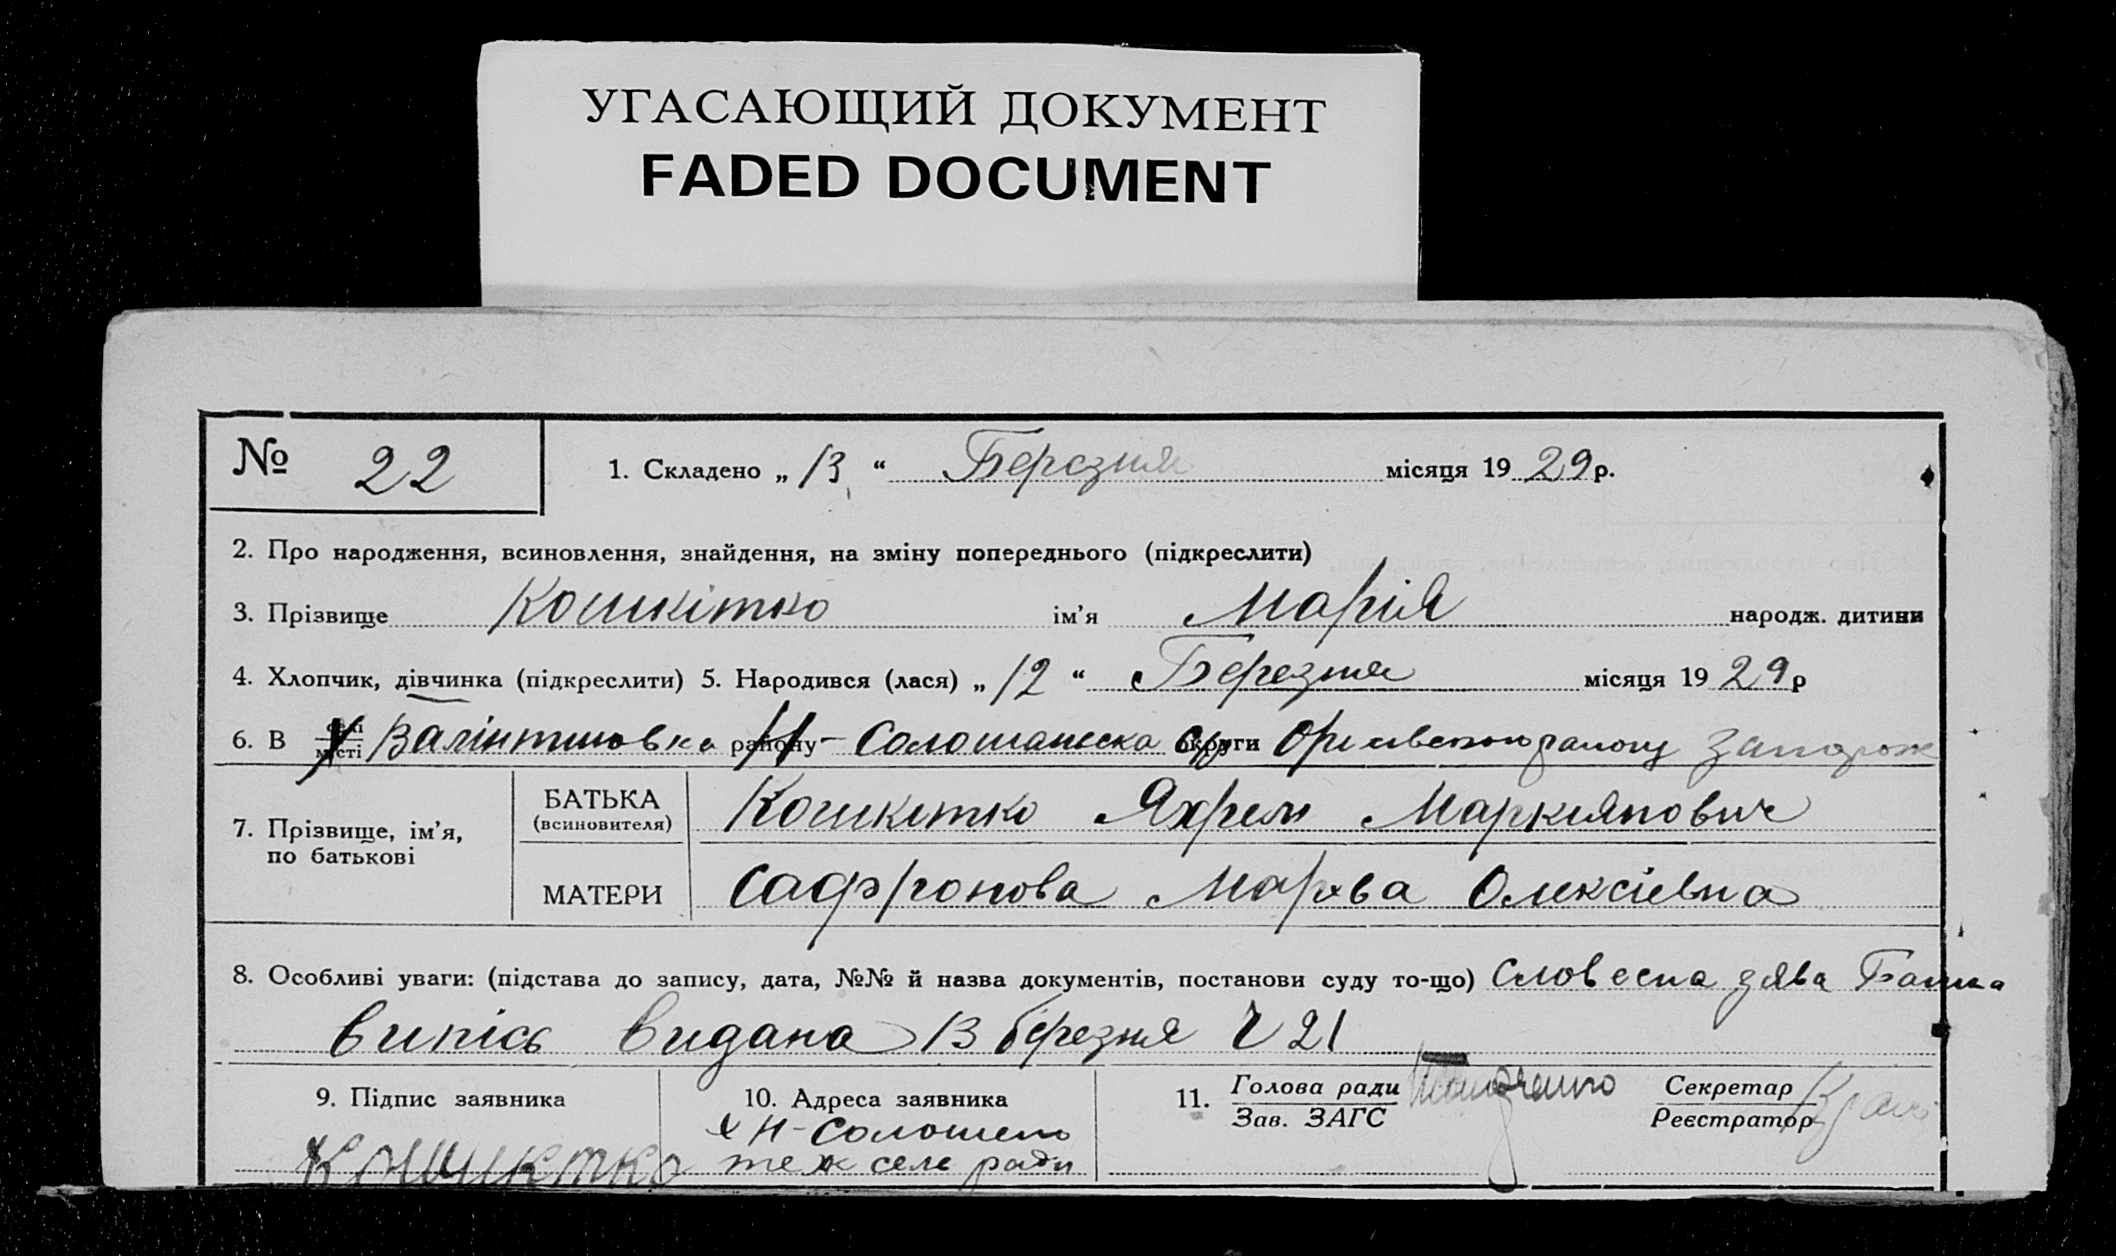 УГАСАЮЩИЙ ДОКУМЕНТ
FADED DOCUMENT
№ 22
1. Складено „ 13 “ Березня місяця 19 29 р.
2. Про народження, всиновлення, знайдення, на зміну попереднього (підкреслити)
3. Прізвище Кошкітко ім’я Марія народж. дитини
4. Хлопчик, дівчинка (підкреслити) 5. Народився (лася) „ 12 “ Березня місяця 19 29 р
6. В селі місті району округи районну Запорож
7. Прізвище, ім’я, по батькові
БАТЬКА (всиновителя) Кошкитко Яхрем Маркиянович
МАТЕРИ Сафронова Марва Олексіевна
8. Особливі уваги: (підстава до запису, дата, №№ й назва документів, постанови суду то-що) Словесна зява Батька
Випісь видана 13 березня Ч 21
9. Підпис заявника
10. Адреса заявника
11. Голова ради
Зав. ЗАГС
Секретар
Реєстратор
Кошкитко
х Н-Солошень
теж селе ради